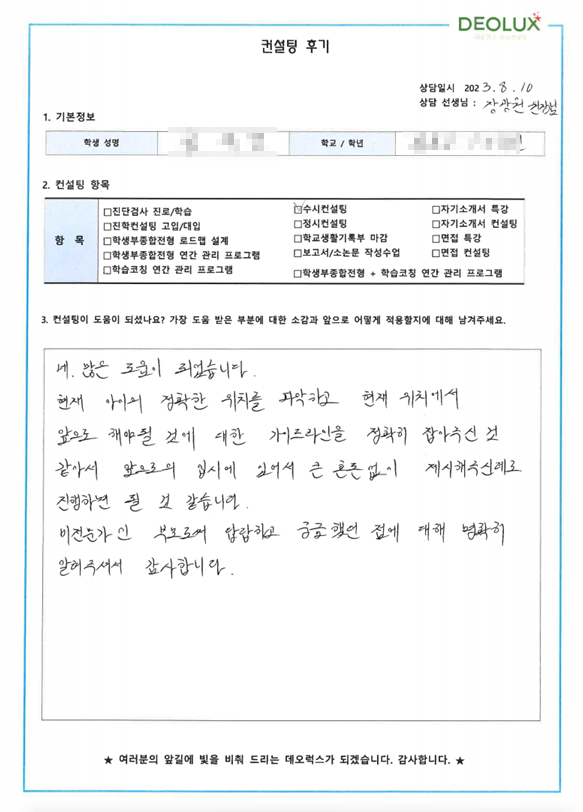 DEOLUX
컨설팅 후기
상담일시 2023.8.10
상담 선생님 : 장광천 원장님
1. 기본정보
학생 성명 학교 / 학년
2. 컨설팅 항목
항 목
□진단검사 진로/학습 ☑수시컨설팅 □자기소개서 특강
□진학컨설팅 고입/대입 □정시컨설팅 □자기소개서 컨설팅
□학생부종합전형 로드맵 설계 □학교생활기록부 마감 □면접 특강
□학생부종합전형 연간 관리 프로그램 □보고서/소논문 작성수업 □면접 컨설팅
□학습코칭 연간 관리 프로그램 □학생부종합전형 + 학습코칭 연간 관리 프로그램
3. 컨설팅이 도움이 되셨나요? 가장 도움 받은 부분에 대한 소감과 앞으로 어떻게 적용할지에 대해 남겨주세요.
네. 많은 도움이 되었습니다.
현재 아이의 정확한 위치를 파악하고 현재 위치에서
앞으로 해야될 것에 대한 가이드라인을 정확히 잡아주신 것
같아서 앞으로의 입시에 있어서 큰 혼돈없이 제시해주신데로
진행하면 될 것 같습니다.
비전문가인 부모로써 답답하고 궁금했던 점에 대해 명확히
알려주셔서 감사합니다.
★ 여러분의 앞길에 빛을 비춰 드리는 데오럭스가 되겠습니다. 감사합니다. ★